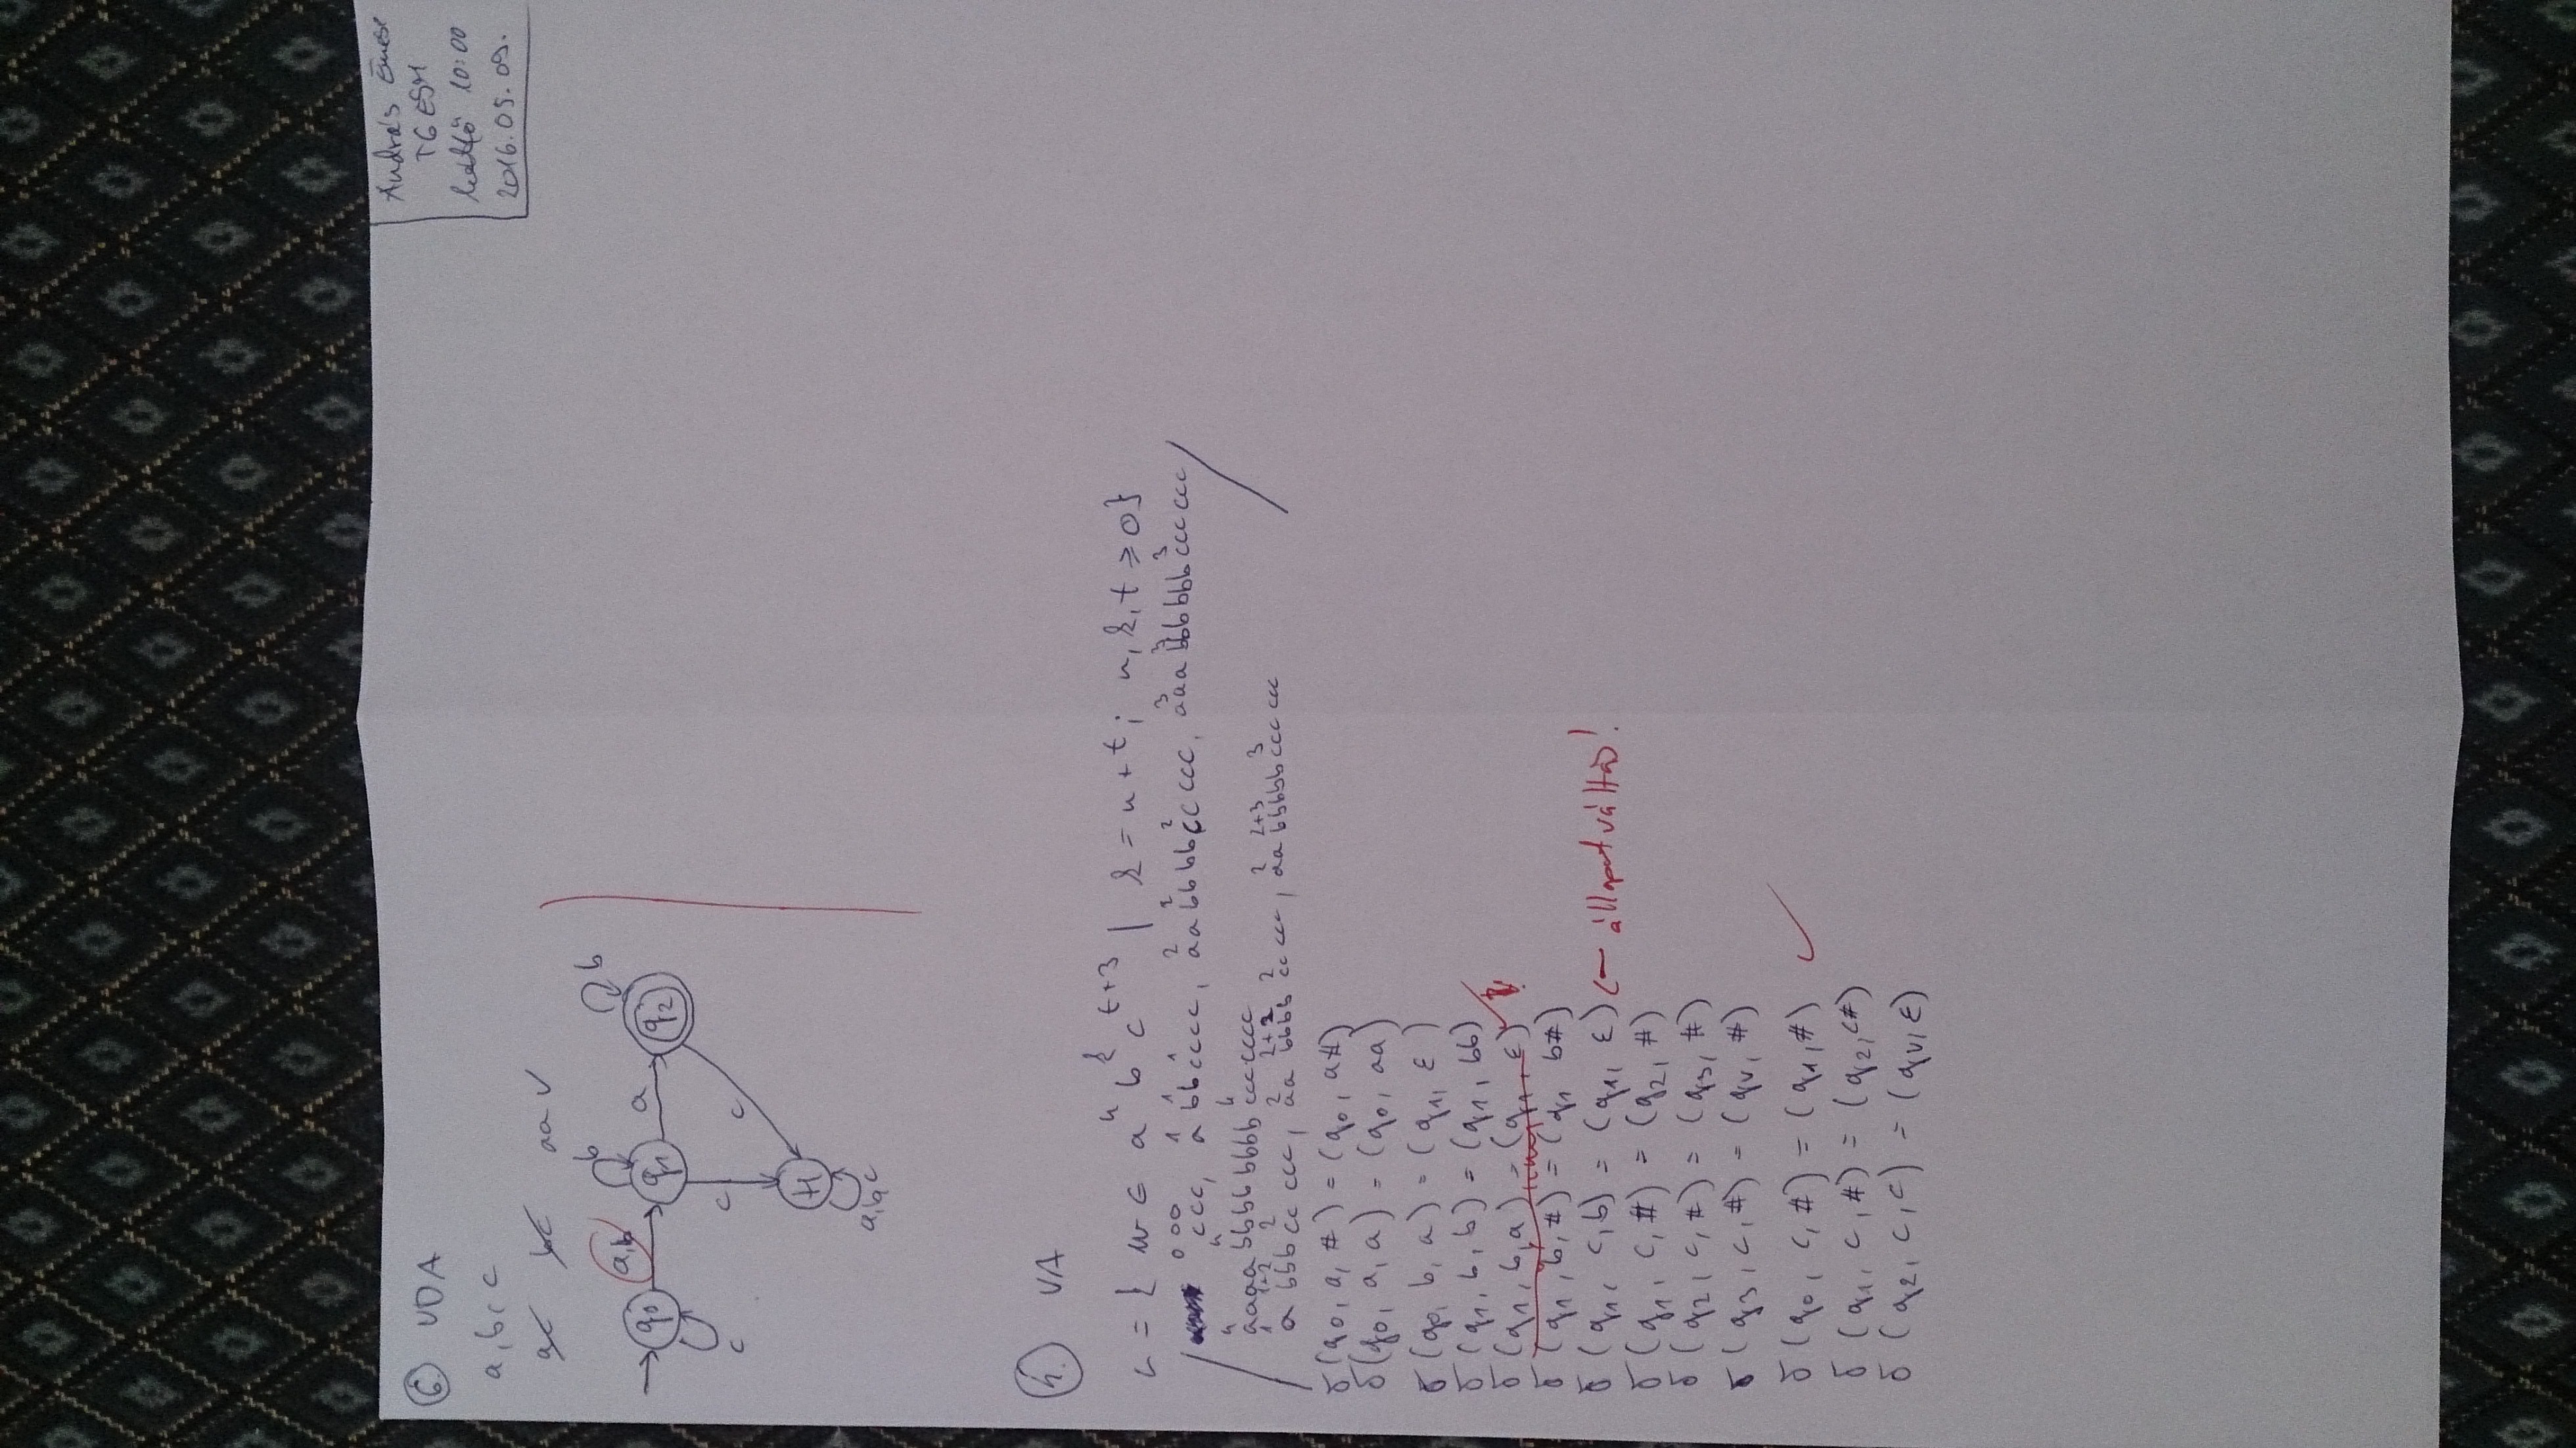 András Emese
T6ESM
hétfő 10:00
2016.05.09.
6. VDA
a, b, c
ac bc aa ✓
a,b b a b
q0 q1 q2
c c c
H
a,b,c
4. VA
L = { w ∈ a^n b^k c^{t+3} | k = n + t; n, k, t ≥ 0}
000 ccc, 1 1 1 abbcccc, 2 2 2 aabbbbccccc, 3 3 3 aaabbbbbbcccccc
4 4 4 aaaabbbbbbbbccccccc
1 1+2 2 abbbccccc, 2 2+2 2 aabbbbccccc, 2 2+3 3 aabbbbbcccccc
δ(q0, a, #) = (q0, a#)
δ(q0, a, a) = (q0, aa)
δ(q0, b, a) = (q1, ε)
δ(q1, b, b) = (q1, bb)
δ(q1, b, a) = (q1, ε) ✓
δ(q1, b, #) = (q1 b#)
δ(q1, c, b) = (q1, ε) ← állapotváltás!
δ(q1, c, #) = (q2, #)
δ(q2, c, #) = (q3, #)
δ(q3, c, #) = (qv, #)
δ(q0, c, #) = (q1, #) ✓
δ(q1, c, #) = (q2, c#)
δ(q2, c, c) = (qv, ε)